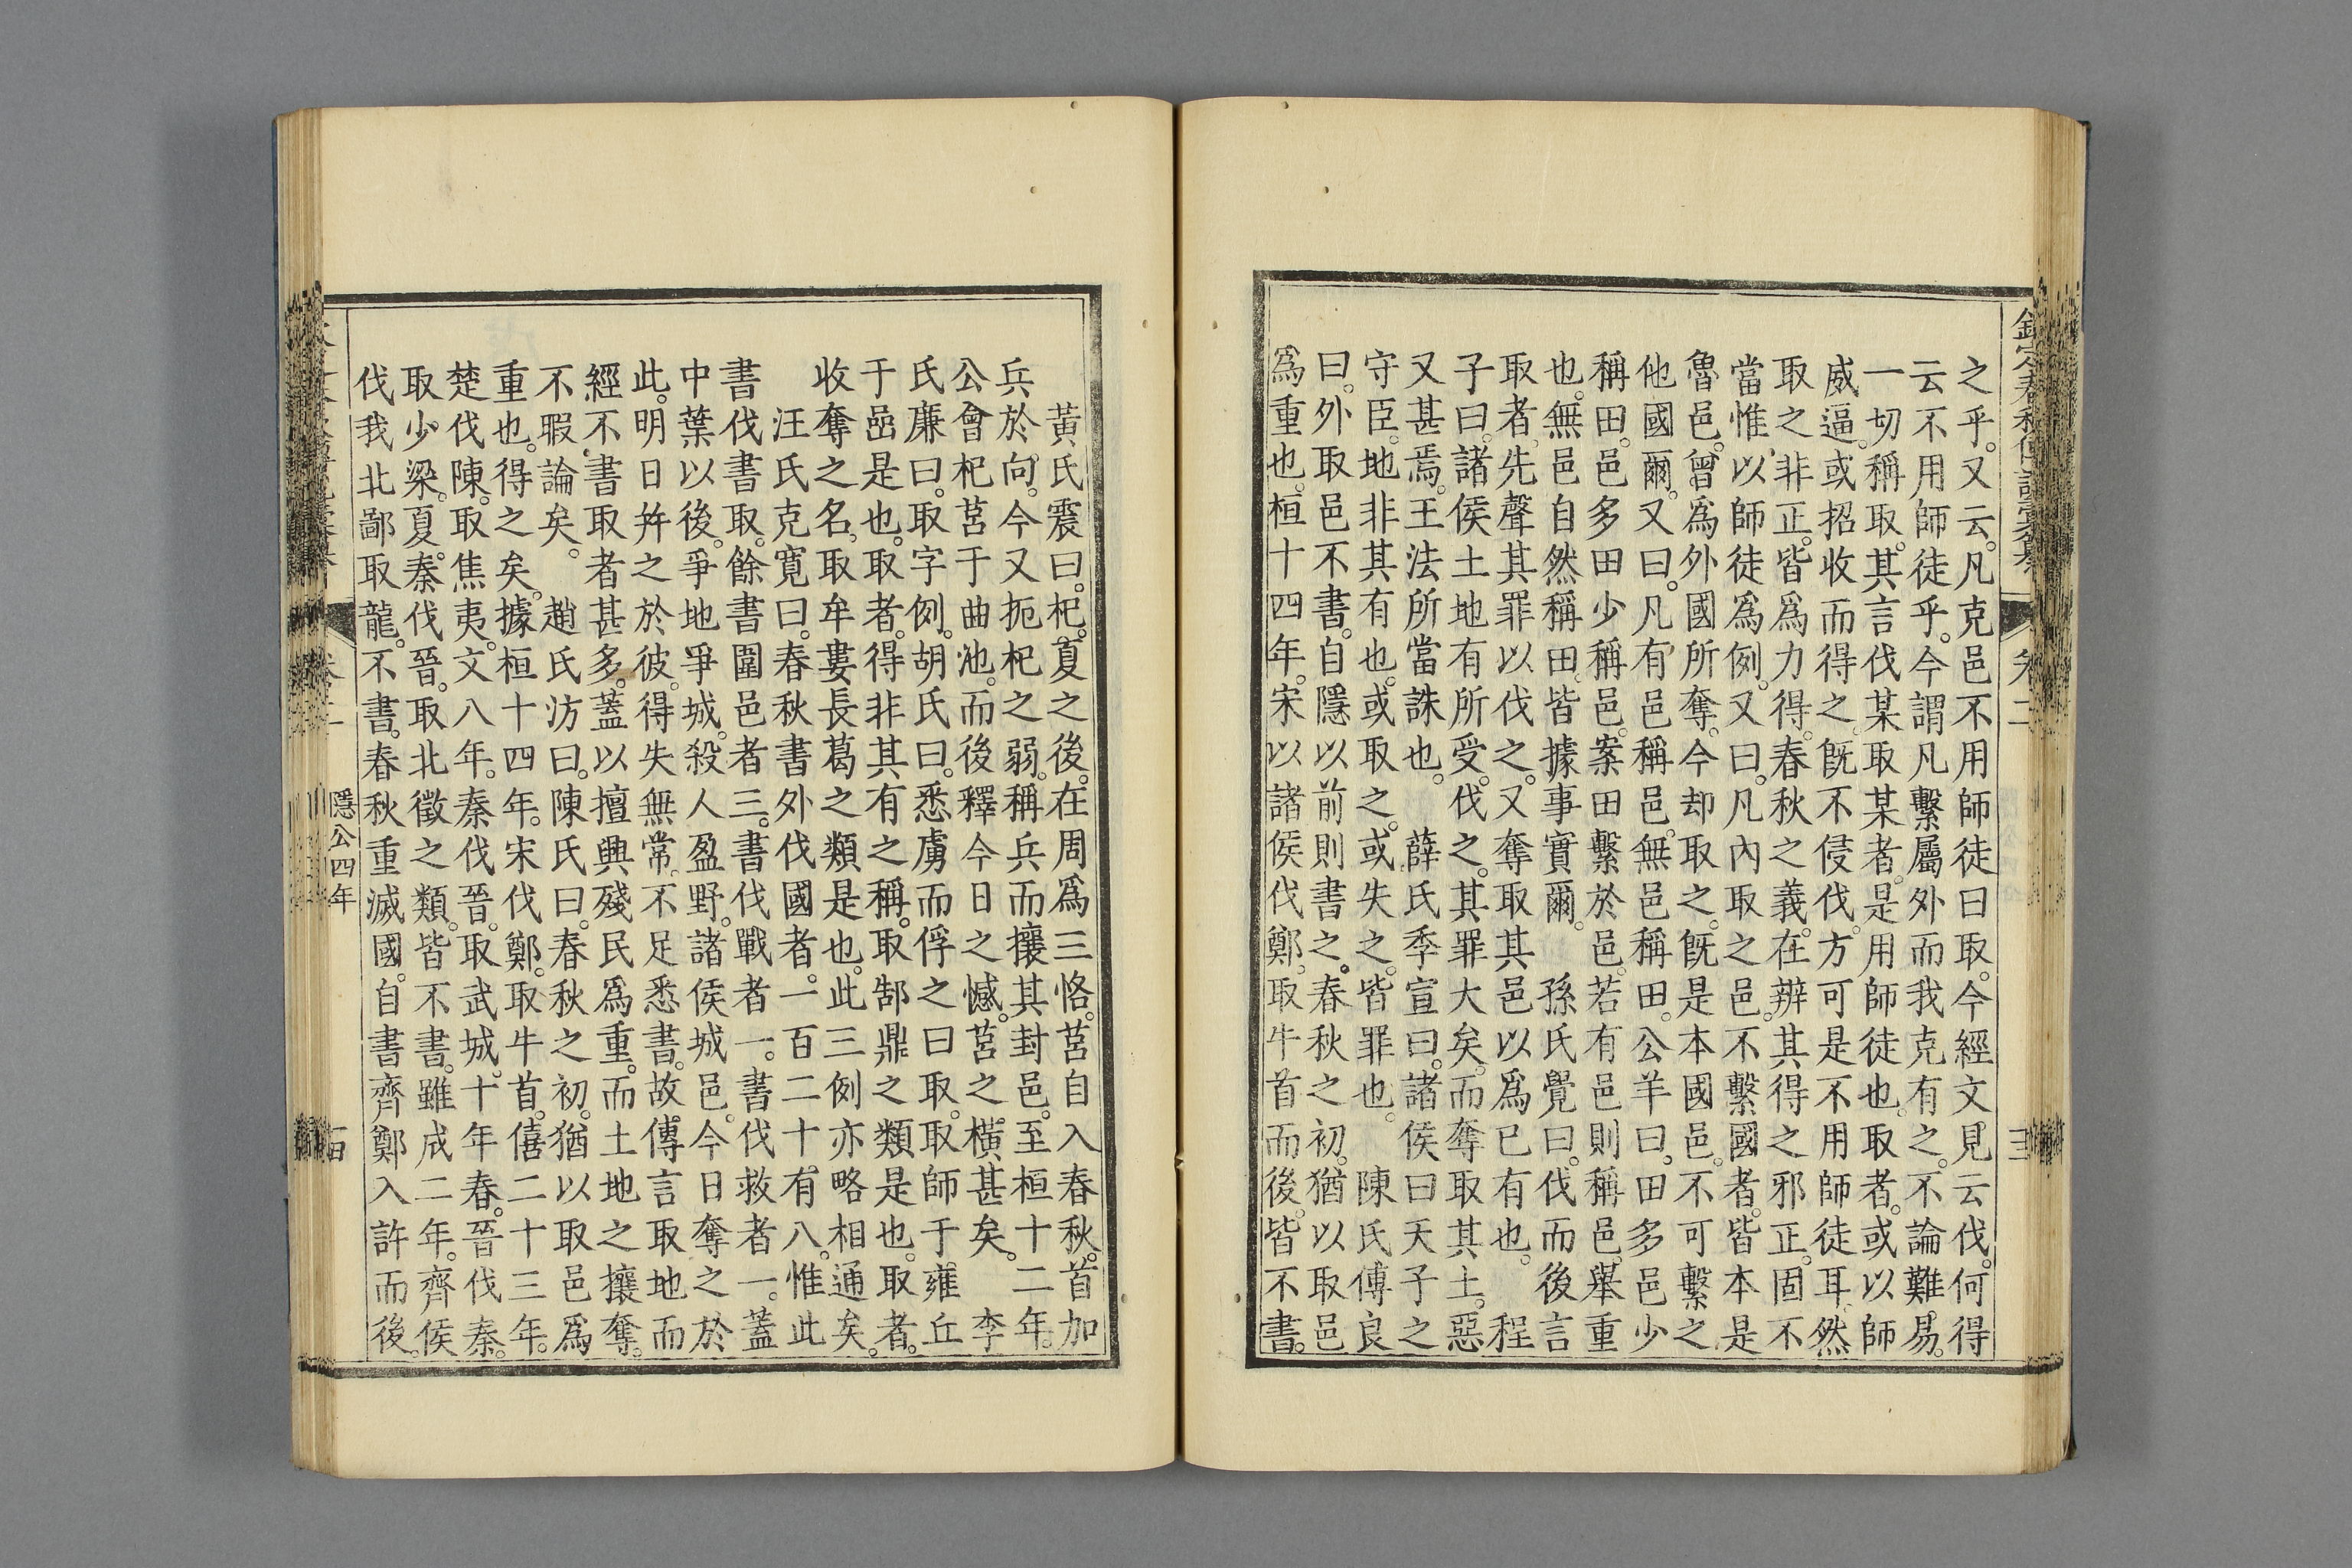 欽定春秋傳說彙纂 卷二 三
之乎。又云。凡克邑不用師徒曰取。今經文見云伐。何得
云不用師徒乎。今謂凡繫屬外而我克有之。不論難易。
一切稱取。其言伐某取某者。是用師徒也。取者。或以師
威逼。或招收而得之。既不侵伐。方可是不用師徒耳。然
取之非正。皆爲力得。春秋之義。在辨其得之邪正。固不
當惟以師徒爲例。又曰。凡內取之邑。不繫國者。皆本是
魯邑。曾爲外國所奪。今却取之。既是本國邑。不可繫之
他國爾。又曰。凡有邑稱邑。無邑稱田。公羊曰。田多邑少
稱田。邑多田少稱邑。案田繫於邑。若有邑則稱邑。舉重
也。無邑自然稱田。皆據事實爾。　孫氏覺曰。伐而後言
取者。先聲其罪以伐之。又奪取其邑以爲已有也。　程
子曰。諸侯土地有所受。伐之。其罪大矣。而奪取其土。惡
又甚焉。王法所當誅也。　薛氏季宣曰。諸侯曰天子之
守臣。地非其有也。或取之。或失之。皆罪也。　陳氏傅良
曰。外取邑不書。自隱以前則書之。春秋之初。猶以取邑
爲重也。桓十四年。宋以諸侯伐鄭。取牛首而後。皆不書。
黃氏震曰。杞。夏之後。在周爲三恪。莒自入春秋。首加
兵於向。今又扼杞之弱。稱兵而攘其封邑。至桓十二年。
公會杞莒于曲池。而後釋今日之憾。莒之橫甚矣。　李
氏廉曰。取字例。胡氏曰。悉虜而俘之曰取。取師于雍丘
于嵒是也。取者。得非其有之稱。取郜鼎之類是也。取者。
收奪之名。取牟婁長葛之類是也。此三例亦略相通矣。
汪氏克寬曰。春秋書外伐國者。一百二十有八。惟此
書伐書取。餘書圍邑者三。書伐戰者一。書伐救者一。蓋
中葉以後。爭地爭城。殺人盈野。諸侯城邑。今日奪之於
此。明日幷之於彼。得失無常。不足悉書。故傳言取地而
經不書取者甚多。蓋以擅興殘民爲重。而土地之攘奪。
不暇論矣。　趙氏汸曰。陳氏曰。春秋之初。猶以取邑爲
重也。得之矣。據桓十四年。宋伐鄭。取牛首。僖二十三年。
楚伐陳。取焦夷。文八年。秦伐晉。取武城。十年春。晉伐秦。
取少梁。夏。秦伐晉。取北徵之類。皆不書。雖成二年。齊侯
伐我北鄙取龍。不書。春秋重滅國。自書齊鄭入許而後。
隱公四年